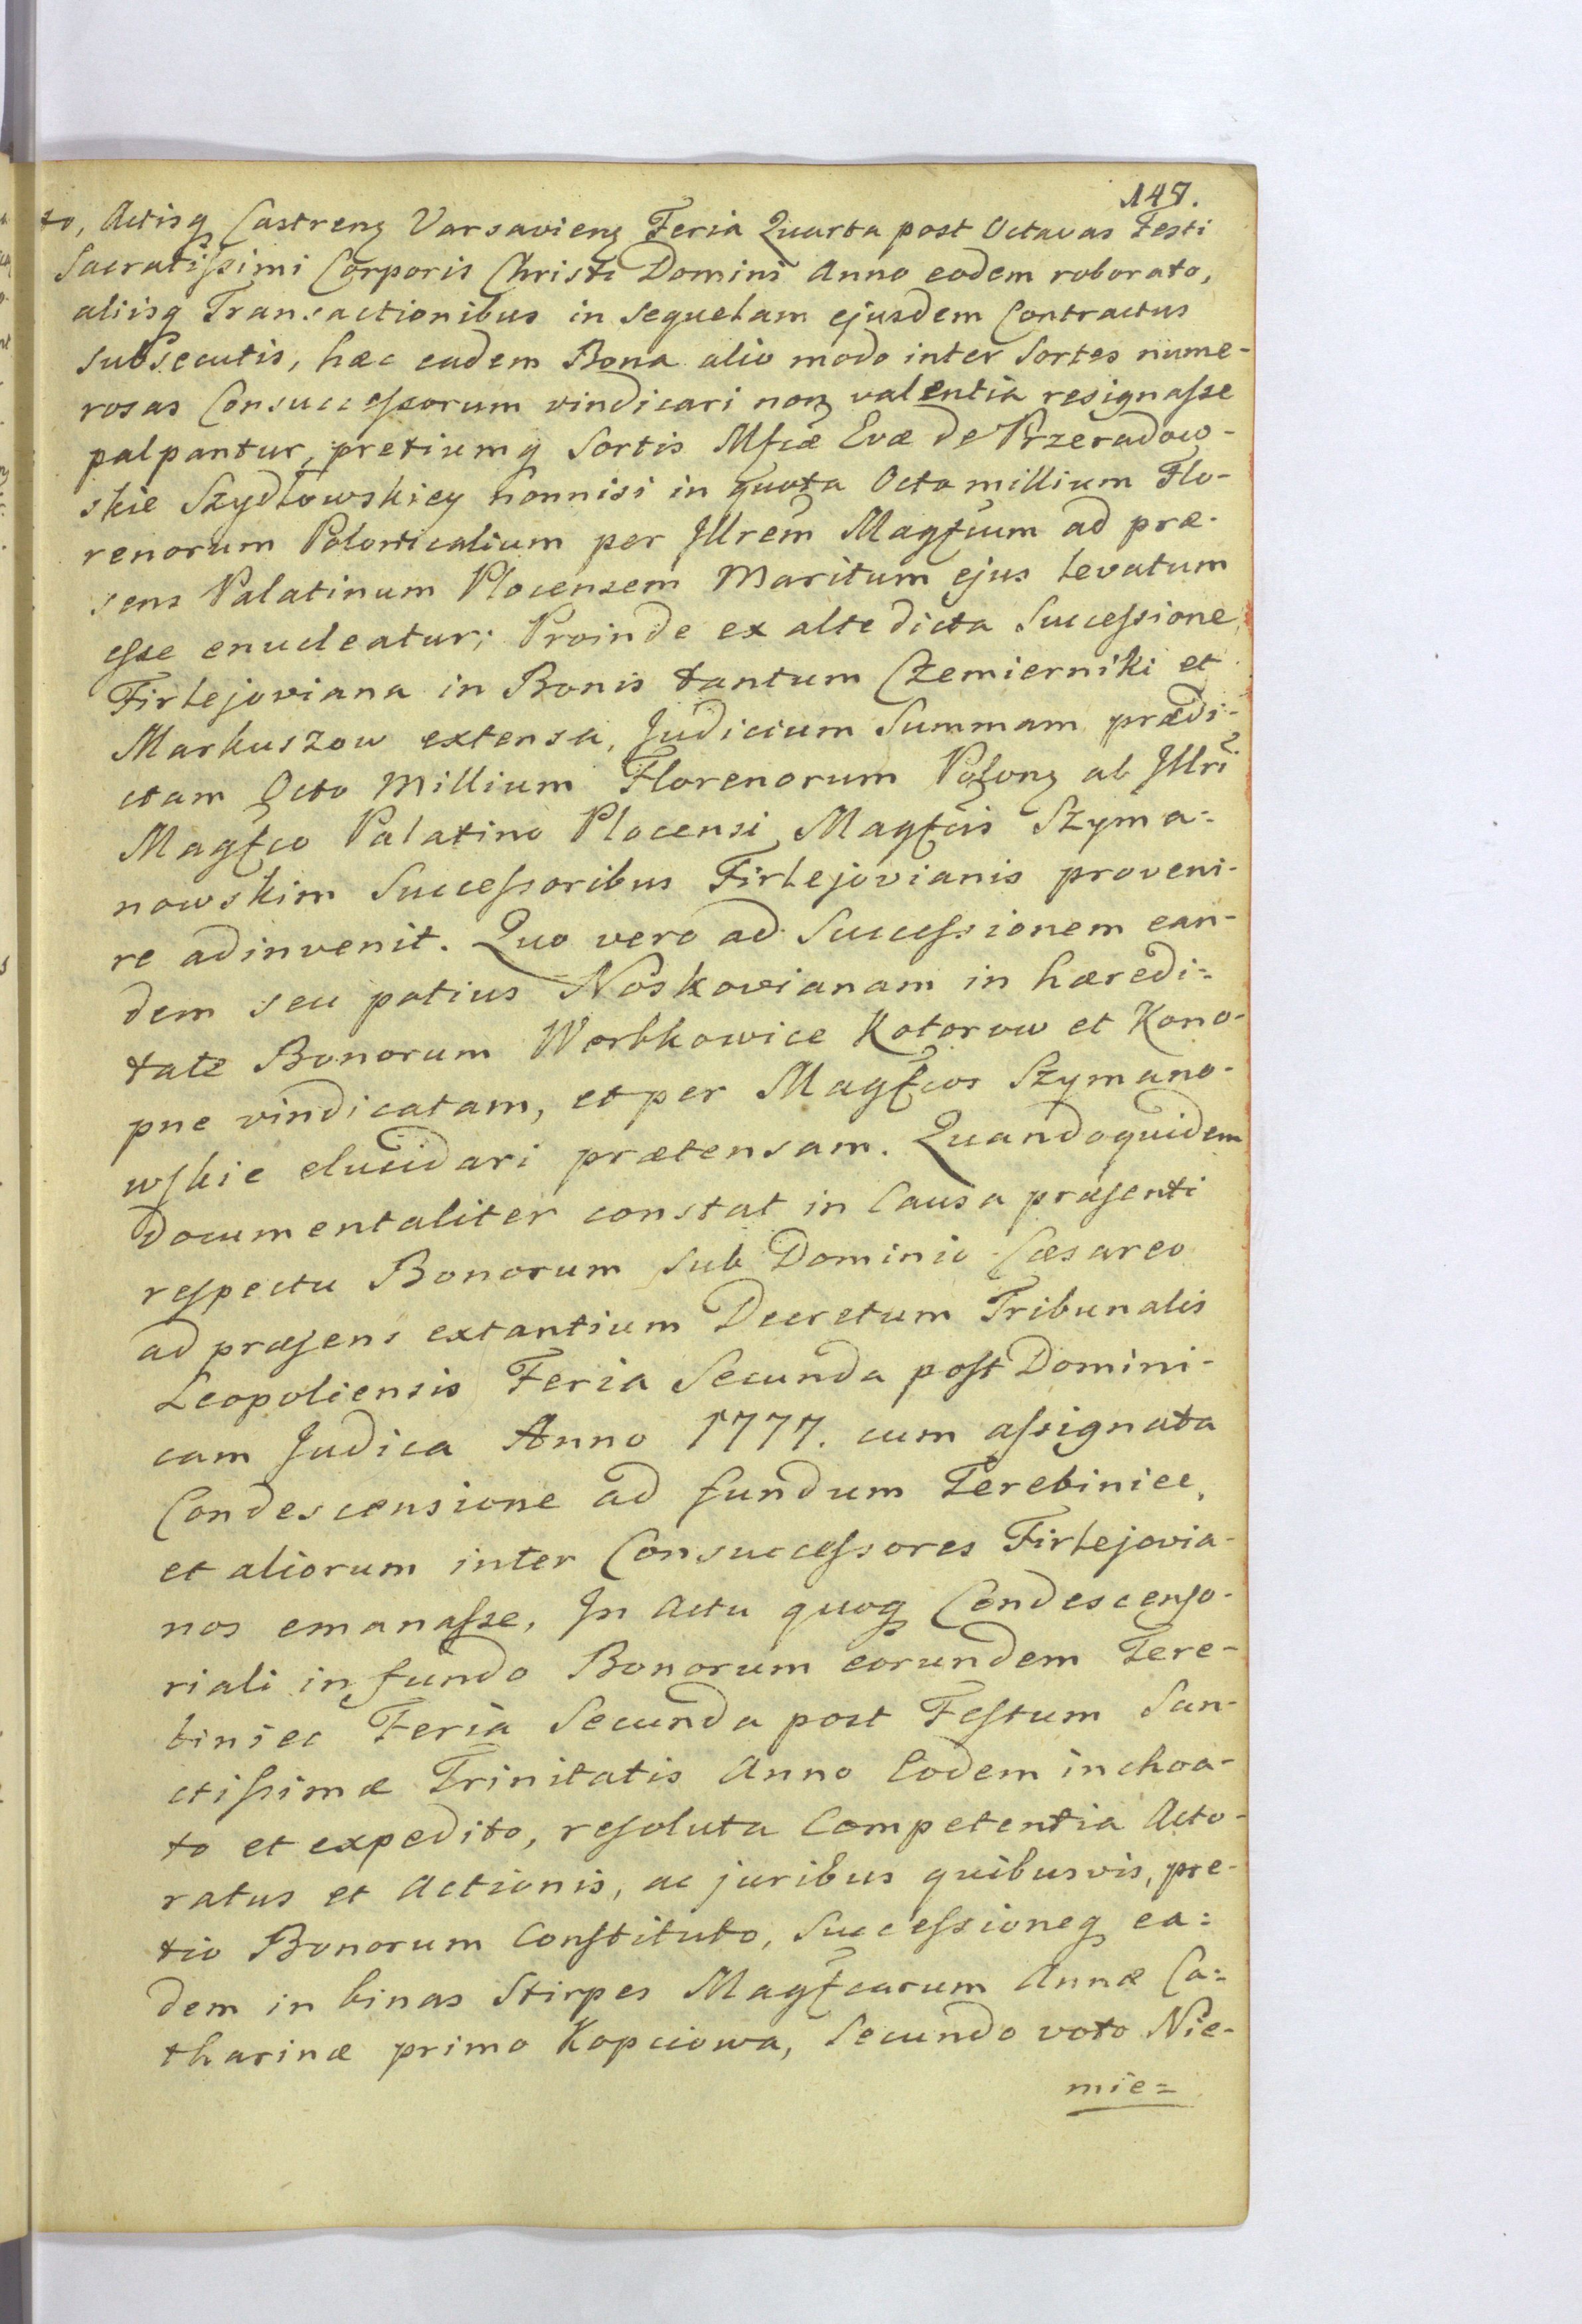 147.
to, Actisq Castrenz Varsavienz Feria Quarta post Octavas Festi
Sacratissimi Corporis Christi Domini Anno eodem roborato,
aliisq Transactionibus in sequelam ejusdem Contractus
subsecutis, hæc eadem Bona alio modo inter Sortes nume-
rosas Consuccessorum vindicari non valentia resignasse
palpantur, pretiumq Sortis Mfcæ Evæ de Przeradow-
skie Szydłowskiey nonnisi in quota Octo millium Flo-
renorum Polonicalium per Jllrem Magfcum ad præ-
sens Palatinum Plocensem Maritum ejus levatum
esse enucleatur; Proinde ex alte dicta Successione
Firlejoviana in Bonis tantum Czemierniki et
Markuszow extensa, Judicium Summam prædi-
ctam Octo Millium Florenorum Polonz ab Jllri
Magfco Palatino Plocensi Magfcis Szyma=
nowskim Successoribus Firlejovianis proveni-
re adinvenit. Quo vero ad Successionem ean-
dem seu potius Noskovianam in hæredi=
tate Bonorum Werbkowice Kotorow et Kono-
pne vindicatam, et per Magfcos Szymano-
wskie elucidari prætensam. Quandoquidem
Documentaliter constat in Causa præsenti
respectu Bonorum sub Dominio Cæsareo
ad præsens extantium Decretum Tribunalis
Leopoliensis Feria Secunda post Domini-
cam Judica Anno 1777. cum assignata
Condescensione ad fundum Terebiniec,
et aliorum inter Consuccessores Firlejovia-
nos emanasse, Jn Actu quoq Condescenso-
riali in fundo Bonorum eorundem Tere-
biniec Feria Secunda post Festum San-
ctissimæ Trinitatis Anno Eodem inchoa-
to et expedito, resoluta Competentia Acto-
ratus et Actionis, ac juribus quibusvis, pre-
tio Bonorum Constituto, Successioneq ea=
dem in binas Stirpes Magfcarum Annæ Ca=
tharinæ primo Kopciowa, Secundo voto Nie-
mie=